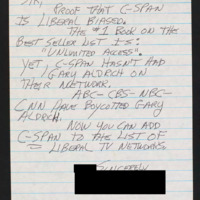 SIR,
PROOF THAT C-SPAN
IS LIBERAL BIASED.
THE #1 BOOK ON THE
BEST SELLER LIST IS:
"UNLIMITED ACCESS".
YET, C-SPAN HASN'T HAD
GARY ALDRCH ON
THEIR NETWORK.
ABC - CBS - NBC -
CNN HAVE BOYCOTTED GARY
ALDRCH.
NOW YOU CAN ADD
C-SPAN TO THE LIST OF
LIBERAL TV NETWORKS.
SINCERELY